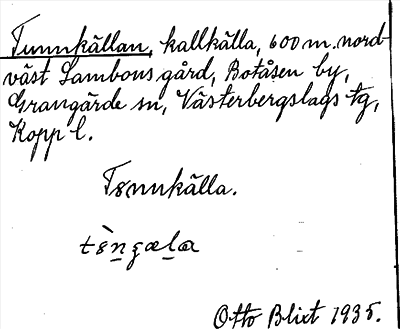 Tunnkällan, kallkälla, 600 m. nord-
väst Lambons gård, Botåsen by,
Grangärde sn, Västerbergslags tg,
Kopp l.
Tɵnnkälla.
Otto Blixt 1935.